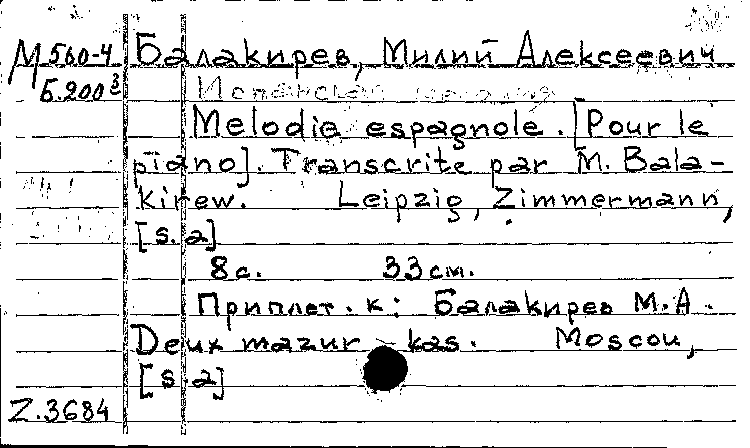 М 560-4 Балакирев, Милий Алексеевич
Б.200³ Испанская мелодия
Melodie espagnole. [Pour le
piano]. Transcrite par M. Bala-
kirew. Leipzig, Zimmermann,
[s.a]
8с. 33см.
Приплет. к: Балакирев М.А.
Deux mazur-kas. Moscou,
[s.a]
Z.3684